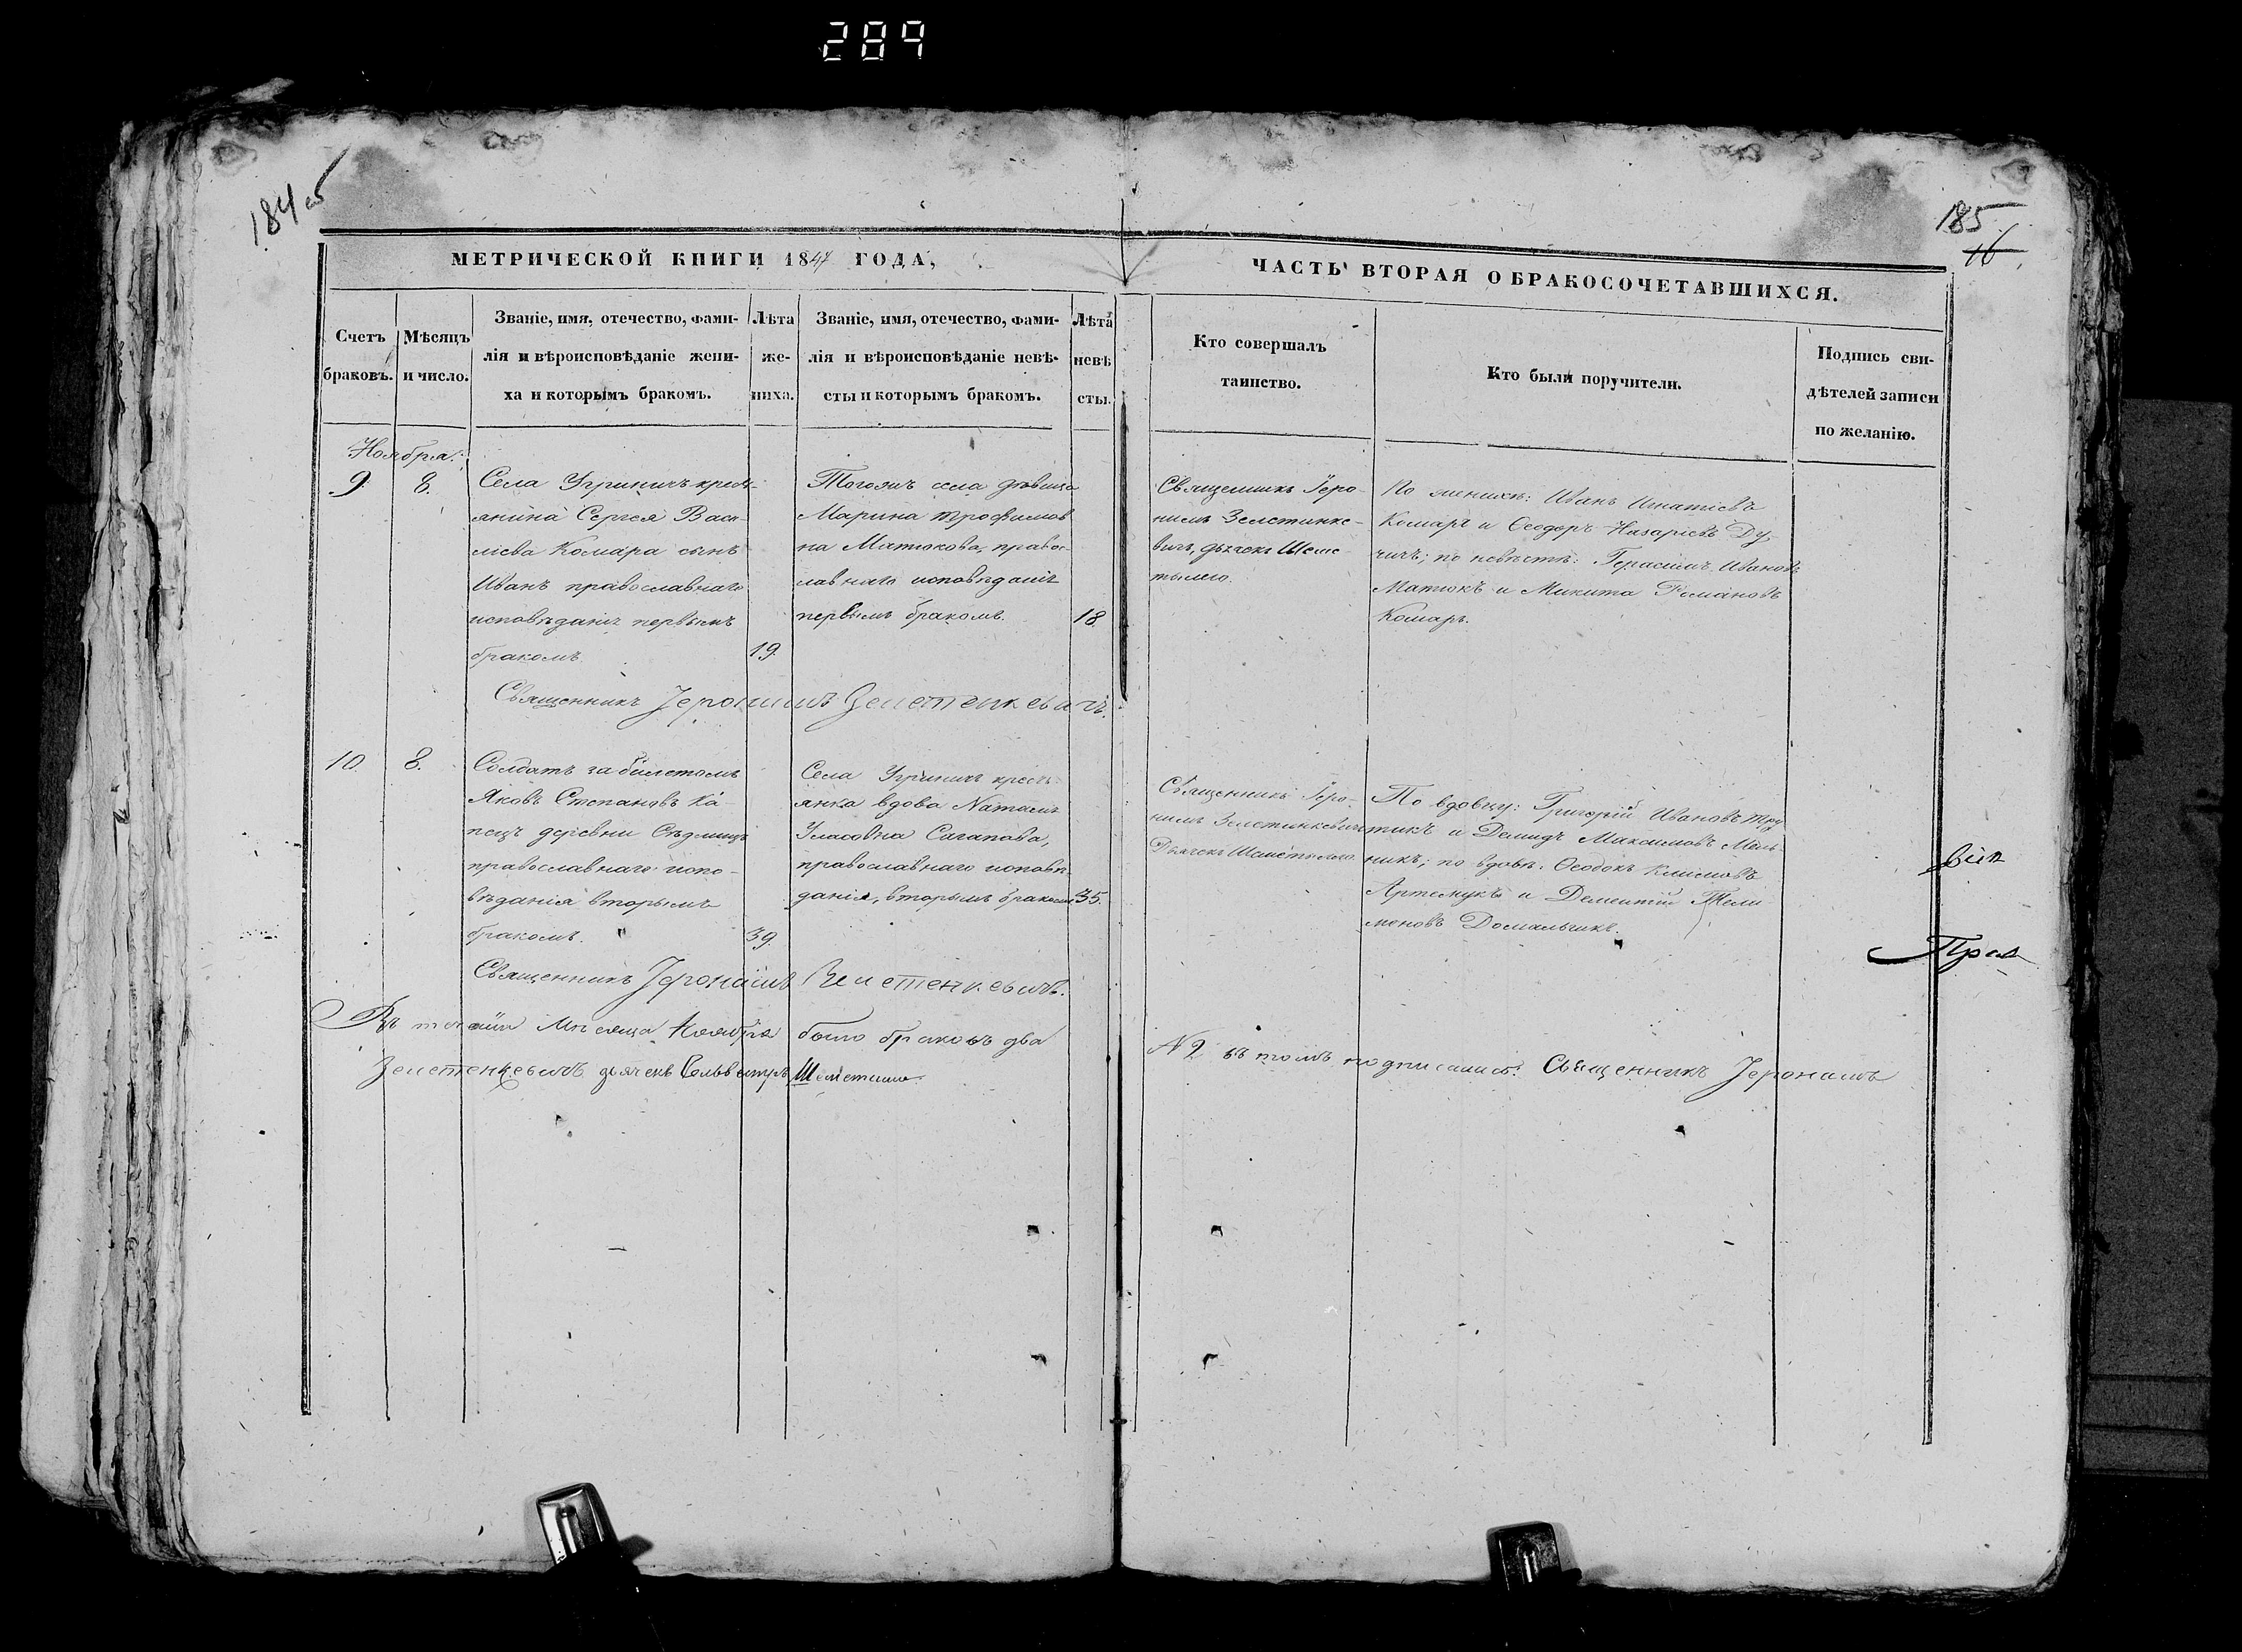 289
184 об
185
16
МЕТРИЧЕСКОЙ КНИГИ 1847 ГОДА,
ЧАСТЬ ВТОРАЯ О БРАКОСОЧЕТАВШИХСЯ.
Счетъ
браковъ.
Мѣсяцъ
и число.
Званіе, имя, отечество, фами-
лія и вѣроисповѣданіе жени-
ха и которымъ бракомъ.
Лѣта
же-
ниха.
Званіе, имя, отечество, фами-
лія и вѣроисповѣданіе невѣ-
сты и которымъ бракомъ.
Лѣта
невѣ
сты.
Кто совершалъ
таинство.
Кто были поручители.
Подпись сви-
дѣтелей записи
по желанію.
Ноября.
9.
8.
Села Угриничъ крест-
янина Сергея Васи-
лiева Комара сынъ
Иванъ православнаго
исповѣданія первымъ
бракомъ.
19.
Тогожъ села дѣвица
Марина Трофимов
на Матюкова, правос-
лавнаго исповѣданія
первымъ бракомъ.
18.
Священникъ Iеро-
нимъ Зелетинке-
вичъ, дьячекъ Шеме
тылло.
По женихѣ: Иванъ Игнатіевъ
Комаръ и Ѳеодоръ Назаріевъ Ду-
чичъ; по невѣстѣ: Герасимъ Ивановъ
Матюкъ и Микита Романовъ
Комаръ.
Священникъ Iеронимъ Зелетенкевичъ.
10.
8.
Солдатъ за билетомъ
Яковъ Степановъ Ка-
пецъ деревни Сѣдлищъ
православнаго испо-
вѣданія вторымъ
бракомъ.
39.
Села Угриничъ кресть-
янка вдова Наталія
Уласовна Сагапова,
православнаго исповѣ-
данія, вторымъ бракомъ
35.
Священникъ Iеро-
нимъ Зелетинкевичъ
Дьячекъ Шаметылло.
По вдовцу: Григорій Ивановъ Тру
тикъ и Демидъ Максимовъ Мель
никъ; по вдовѣ: Ѳеодокъ Климовъ
Артемукъ и Дементій Тели
меновъ Домальчикъ.
Священникъ Iеронимъ Зелетенкевичъ.
Въ теченіи Мѣсяца Ноября было браковъ два
№ 2 въ томъ подписались: Священникъ Iеронимъ
Зелетенкевичъ дьячекъ Сельвестръ Шеметилло